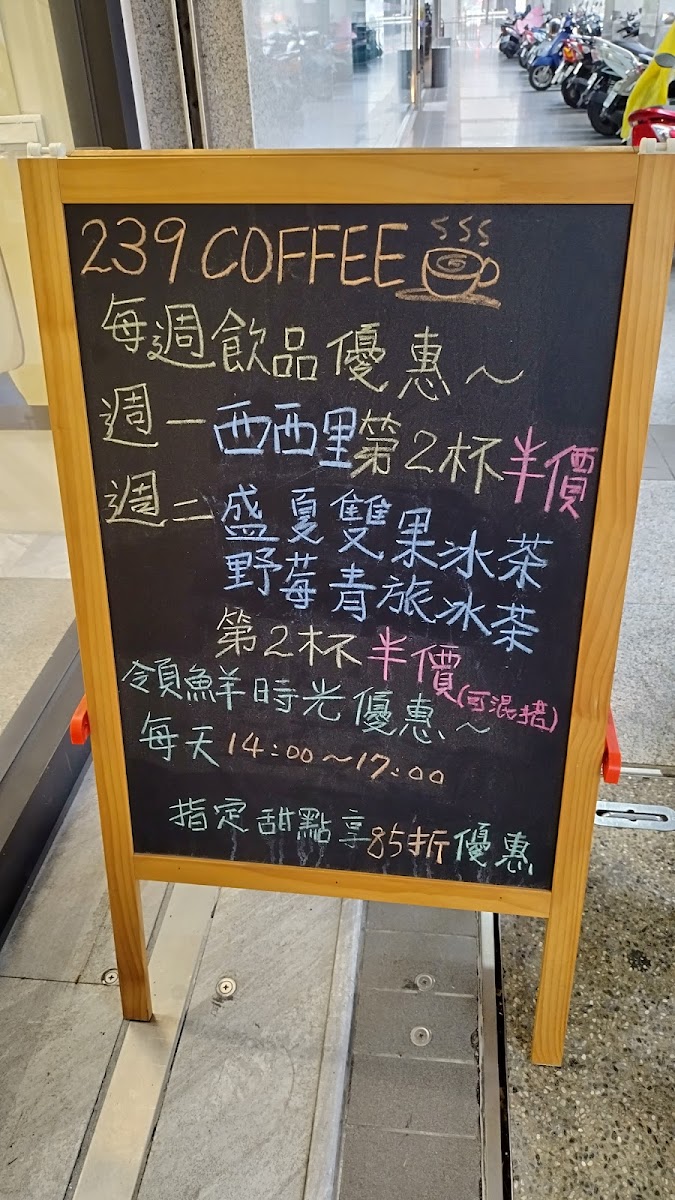 239 COFFEE
每週飲品優惠~
週一 西西里第2杯半價
週二 盛夏雙果冰茶
野莓青旅冰茶
第2杯半價(可混搭)
領鮮時光優惠~
每天14:00~17:00
指定甜點享85折優惠